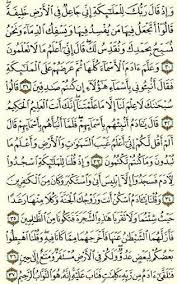 وَإِذْ قَالَ رَبُّكَ لِلْمَلَٰٓئِكَةِ إِنِّى جَاعِلٌ فِى ٱلْأَرْضِ خَلِيفَةً
قَالُوٓا۟ أَتَجْعَلُ فِيهَا مَن يُفْسِدُ فِيهَا وَيَسْفِكُ ٱلدِّمَآءَ وَنَحْنُ
نُسَبِّحُ بِحَمْدِكَ وَنُقَدِّسُ لَكَ قَالَ إِنِّىٓ أَعْلَمُ مَا لَا تَعْلَمُونَ
٣٠ وَعَلَّمَ ءَادَمَ ٱلْأَسْمَآءَ كُلَّهَا ثُمَّ عَرَضَهُمْ عَلَى ٱلْمَلَٰٓئِكَةِ
فَقَالَ أَنۢبِـُٔونِى بِأَسْمَآءِ هَٰٓؤُلَآءِ إِن كُنتُمْ صَٰدِقِينَ ٣١ قَالُوا۟
سُبْحَٰنَكَ لَا عِلْمَ لَنَآ إِلَّا مَا عَلَّمْتَنَآ إِنَّكَ أَنتَ ٱلْعَلِيمُ ٱلْحَكِيمُ
٣٢ قَالَ يَٰٓـَٔادَمُ أَنۢبِئْهُم بِأَسْمَآئِهِمْ فَلَمَّآ أَنۢبَأَهُم بِأَسْمَآئِهِمْ
قَالَ أَلَمْ أَقُل لَّكُمْ إِنِّىٓ أَعْلَمُ غَيْبَ ٱلسَّمَٰوَٰتِ وَٱلْأَرْضِ وَأَعْلَمُ مَا
تُبْدُونَ وَمَا كُنتُمْ تَكْتُمُونَ ٣٣ وَإِذْ قُلْنَا لِلْمَلَٰٓئِكَةِ ٱسْجُدُوا۟
لِـَٔادَمَ فَسَجَدُوٓا۟ إِلَّآ إِبْلِيسَ أَبَىٰ وَٱسْتَكْبَرَ وَكَانَ مِنَ ٱلْكَٰفِرِينَ
٣٤ وَقُلْنَا يَٰٓـَٔادَمُ ٱسْكُنْ أَنتَ وَزَوْجُكَ ٱلْجَنَّةَ وَكُلَا مِنْهَا رَغَدًا
حَيْثُ شِئْتُمَا وَلَا تَقْرَبَا هَٰذِهِ ٱلشَّجَرَةَ فَتَكُونَا مِنَ ٱلظَّٰلِمِينَ ٣٥
فَأَزَلَّهُمَا ٱلشَّيْطَٰنُ عَنْهَا فَأَخْرَجَهُمَا مِمَّا كَانَا فِيهِ وَقُلْنَا ٱهْبِطُوا۟
بَعْضُكُمْ لِبَعْضٍ عَدُوٌّ وَلَكُمْ فِى ٱلْأَرْضِ مُسْتَقَرٌّ وَمَتَٰعٌ إِلَىٰ حِينٍ
٣٦ فَتَلَقَّىٰٓ ءَادَمُ مِن رَّبِّهِۦ كَلِمَٰتٍ فَتَابَ عَلَيْهِ إِنَّهُۥ هُوَ ٱلتَّوَّابُ ٱلرَّحِيمُ ٣٧